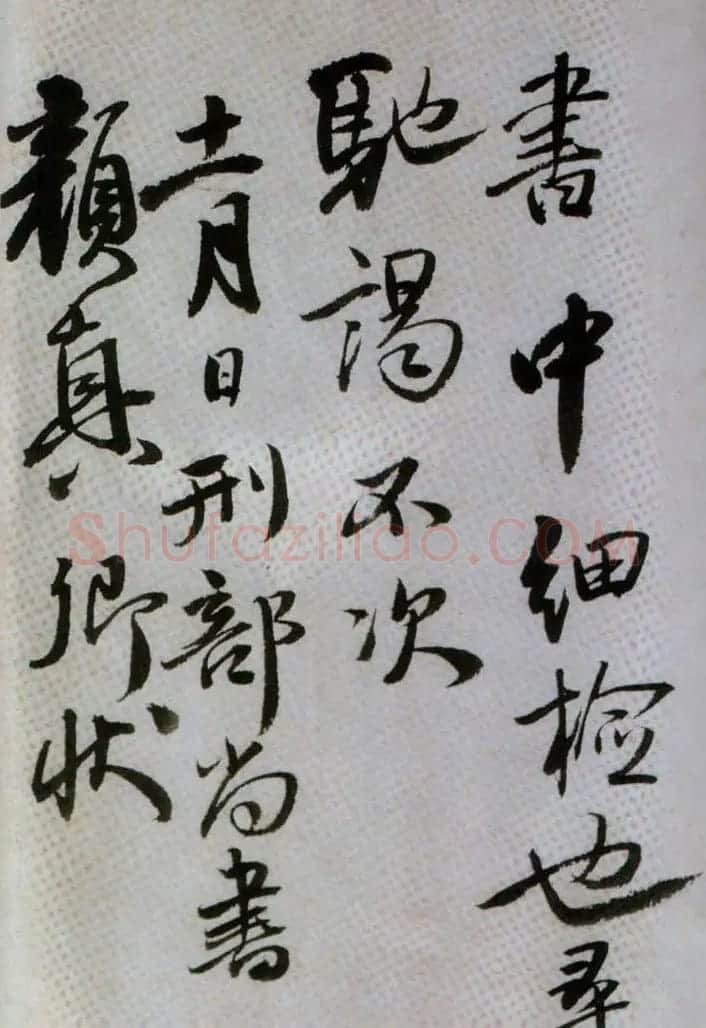 書中細檢也尋
馳謁不次
十一月日刑部尚書
顏真卿狀
Shufaziliao.COM